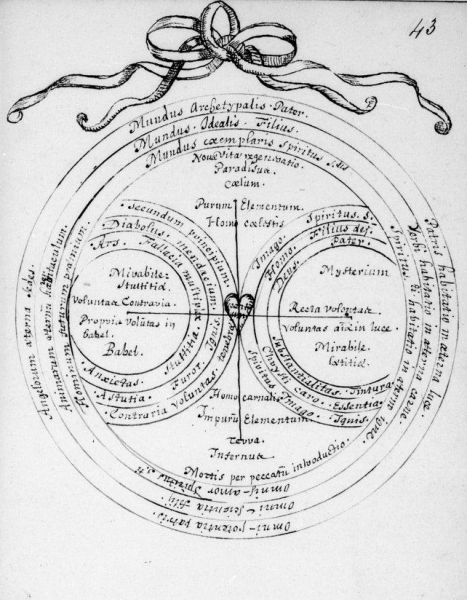 43
Mundus Archetypalis Pater.
Mundus Idealis Filius.
Mundus exemplaris Spiritus
Nova Vita regeneratio
Paradisus
Cœlum.
Purum Elementum.
Homo cœlestis
Angelorum æterna sedes.
Animarum æterna habitaculum.
Hominum futurum
Patris habitatio in æterna luce
Verbi habitatio in æterna carne.
Spiritus S. habitatio in æterno igne.
Secundum principium.
Diabolus mendacium.
Ars. Fallacia multiplex
Mirabile
Stultitia
Voluntas Contraria.
Propria volutas in
babel.
Babel.
Anxietas. Stultitia
Astutia. Furor. Ignis.
Contraria voluntas. tenebræ
Spiritus S.
Filius dei.
Pater.
Imago.
Homo.
Deus.
Mysterium
Recta Voluntas
Voluntas in luce.
Mirabile
Substantialitas. Tinctura
Christi caro. Essentia
Spiritus Imago. Ignis.
Homo carnalis
Impuru Elementum.
Terra.
Infernus
Mortis per peccatu introductio
Omni-amor Spiritus
Omni-scientia filii
Omni-potentia patris